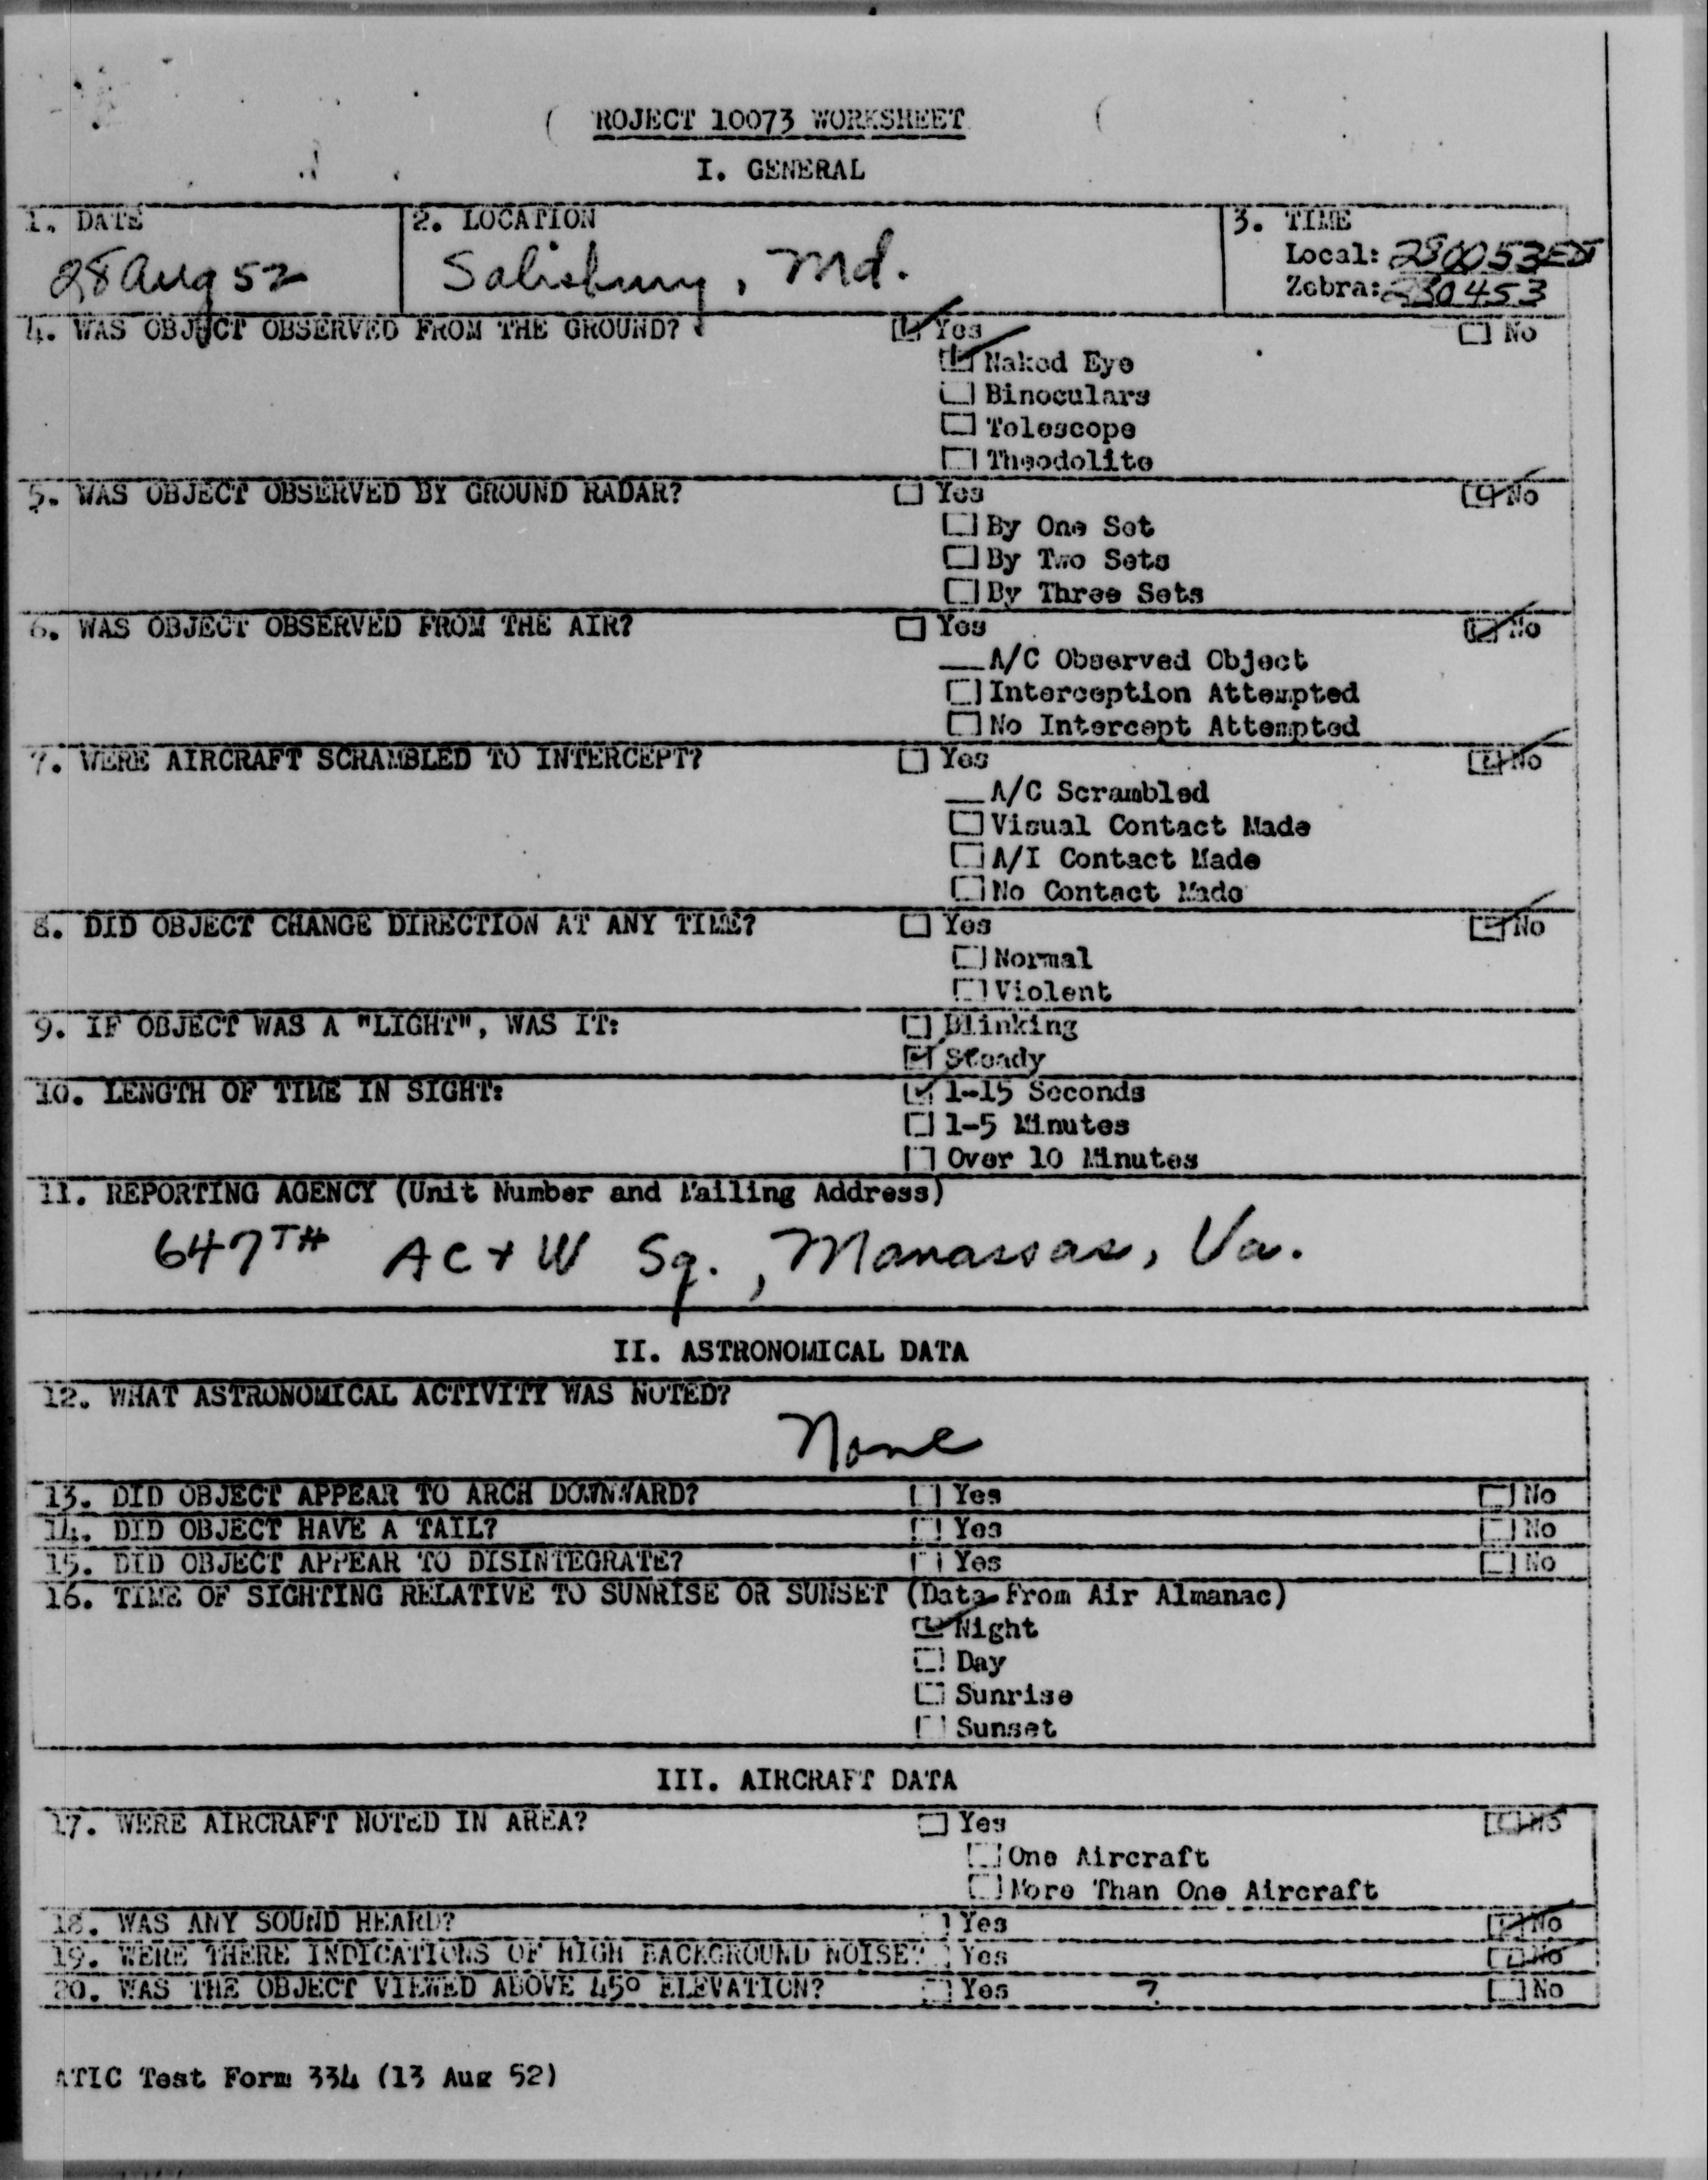 ROJECT 10073 WORKSHEET
I. GENERAL
1. DATE
28 Aug 52
2. LOCATION
Salisbury, Md.
3. TIME
Local: 280053 EDT
Zebra: 280453
4. WAS OBJECT OBSERVED FROM THE GROUND?
☑ Yes ☐ No
☑ Naked Eye
☐ Binoculars
☐ Telescope
☐ Theodolite
5. WAS OBJECT OBSERVED BY GROUND RADAR? ☐ Yes ☑ No
☐ By One Set
☐ By Two Sets
☐ By Three Sets
6. WAS OBJECT OBSERVED FROM THE AIR? ☐ Yes ☑ No
__A/C Observed Object
☐ Interception Attempted
☐ No Intercept Attempted
7. WERE AIRCRAFT SCRAMBLED TO INTERCEPT? ☐ Yes ☑ No
__A/C Scrambled
☐ Visual Contact Made
☐ A/I Contact Made
☐ No Contact Made
8. DID OBJECT CHANGE DIRECTION AT ANY TIME? ☐ Yes ☑ No
☐ Normal
☐ Violent
9. IF OBJECT WAS A "LIGHT", WAS IT: ☐ Blinking
☑ Steady
10. LENGTH OF TIME IN SIGHT: ☑ 1-15 Seconds
☐ 1-5 Minutes
☐ Over 10 Minutes
11. REPORTING AGENCY (Unit Number and Mailing Address)
647TH AC+W Sq., Manassas, Va.
II. ASTRONOMICAL DATA
12. WHAT ASTRONOMICAL ACTIVITY WAS NOTED?
None
13. DID OBJECT APPEAR TO ARCH DOWNWARD? ☐ Yes ☐ No
14. DID OBJECT HAVE A TAIL? ☐ Yes ☐ No
15. DID OBJECT APPEAR TO DISINTEGRATE? ☐ Yes ☐ No
16. TIME OF SIGHTING RELATIVE TO SUNRISE OR SUNSET (Data From Air Almanac)
☑ Night
☐ Day
☐ Sunrise
☐ Sunset
III. AIRCRAFT DATA
17. WERE AIRCRAFT NOTED IN AREA? ☐ Yes ☑ No
☐ One Aircraft
☐ More Than One Aircraft
18. WAS ANY SOUND HEARD? ☐ Yes ☑ No
19. WERE THERE INDICATIONS OF HIGH BACKGROUND NOISE? ☐ Yes ☑ No
20. WAS THE OBJECT VIEWED ABOVE 45° ELEVATION? ☐ Yes ? ☐ No
ATIC Test Form 334 (13 Aug 52)